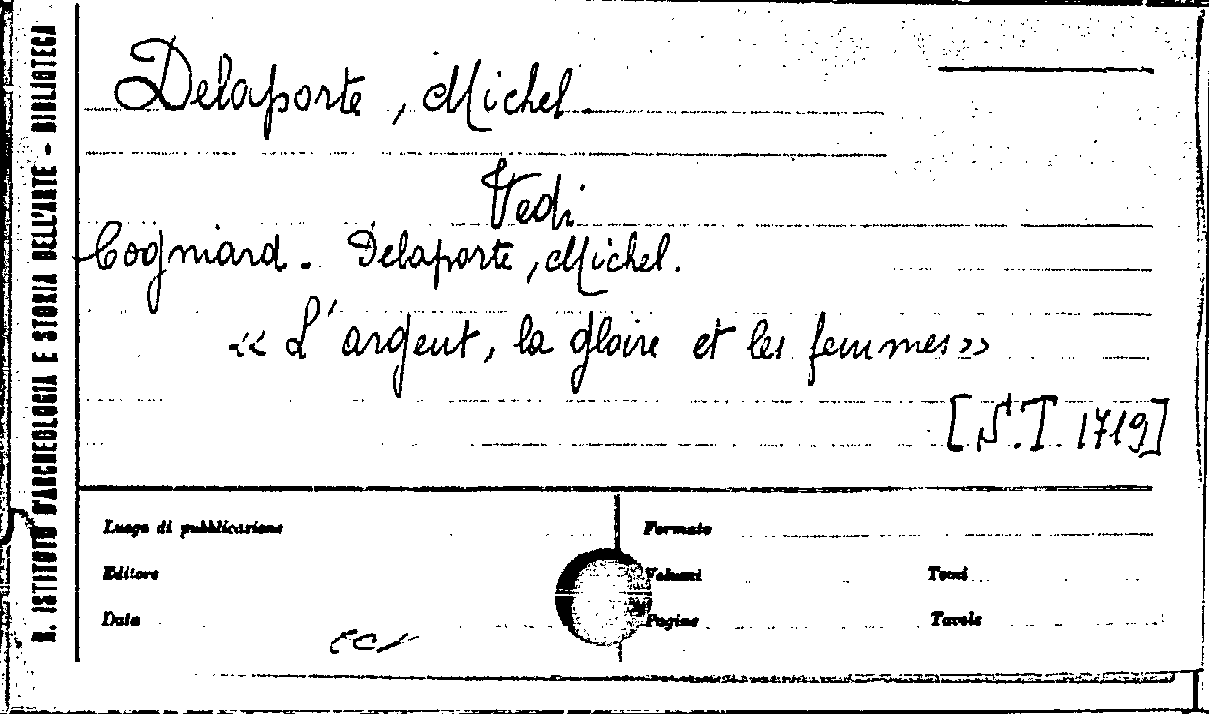 R. ISTITUTO D'ARCHEOLOGIA E STORIA DELL'ARTE - BIBLIOTECA
Delaporte, Michel
Vedi
Cogniard. Delaporte, Michel.
« L'argent, la gloire et les femmes »
[S.T. 1719]
Luogo di pubblicazione
Formato
Editore
Volumi
Tomi
Data
Pagine
Tavole